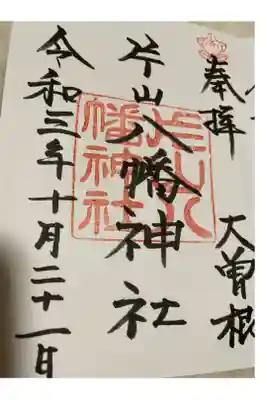 奉拝
大曽根
片山八幡神社
片山八幡神社
令和三年十月二十一日